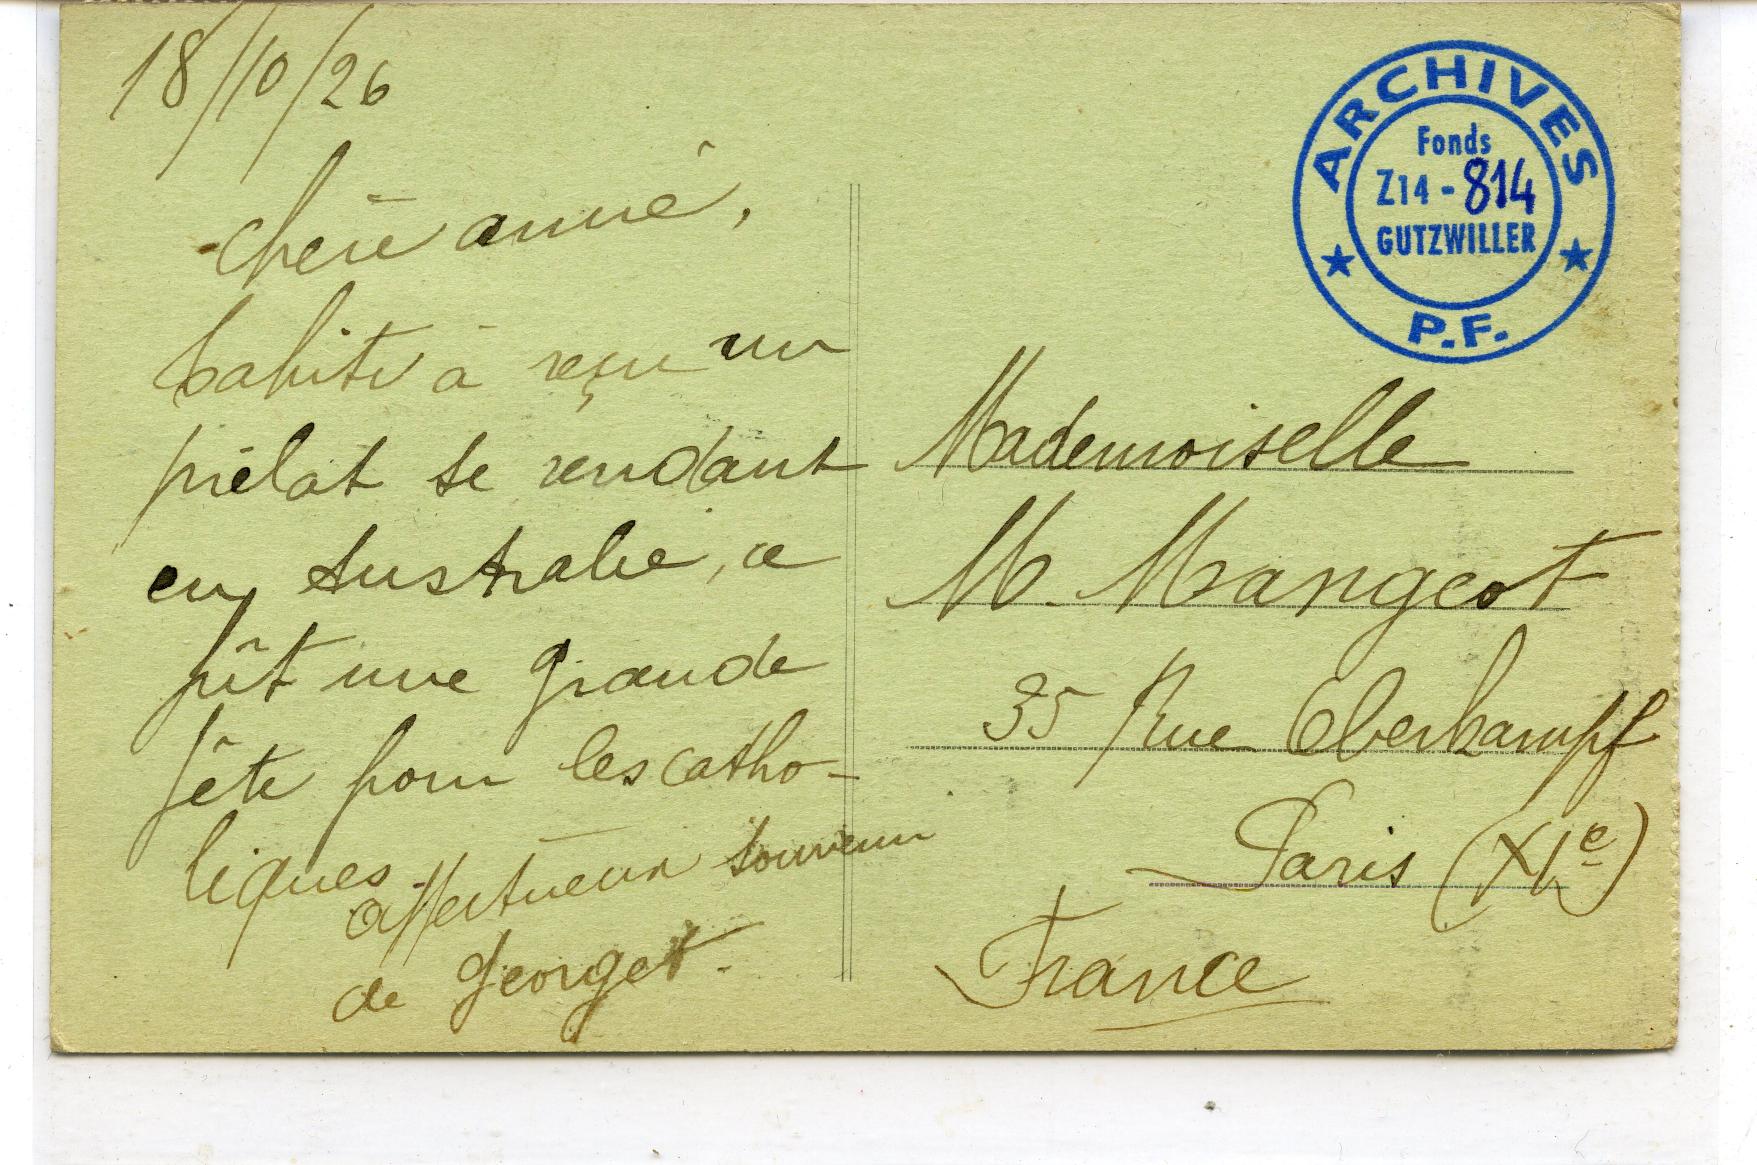 18/10/26
Chère amie,
Tahiti à reçu un
prélat se rendant
en Australie, ce
fût une grande
fête pour les catho-
liques.
affectueux souvenir
de Georget.
ARCHIVES
Fonds
Z14 - 814
GUTZWILLER
P.F.
Mademoiselle
M. Mangeot
35 Rue Oberkampf
Paris (XIe)
France